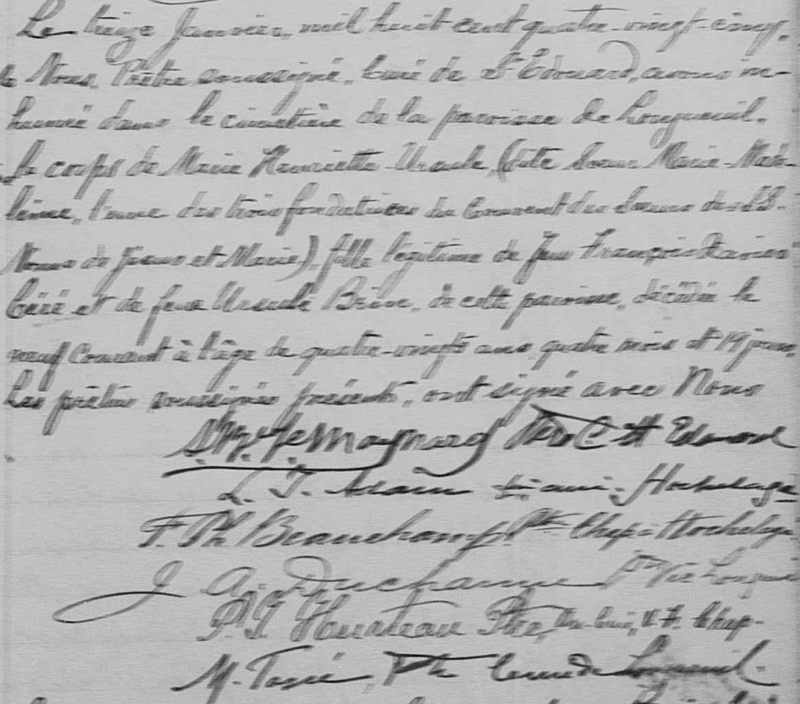 Le treize Janvier, mil huit-cent quatre-vingt-cinq,
Nous, Prêtre soussigné, Curé de St Edouard, avons in-
humé dans le cimetière de la paroisse de Longueuil,
le corps de Marie Henriette Ursule, (dite Soeur Marie-Made-
leine, l'une des trois fondatrices du Couvent des Soeurs des SS.
Noms de Jésus et Marie), fille légitime de feu François-Xavier
Céré et de feue Ursule Brin, de cette paroisse, décédée le
neuf courant à l'âge de quatre-vingts ans, quatre mois et 19 jours.
Les prêtres soussignés présents, ont signé avec Nous
Maynard Ptre C. St Edouard
L. J. Adam Hochelaga
F. Ph. Beauchamp, Ptre Chap. Hochelaga
J. A. Duchaine Ptre Vic Longueuil
Ptre, Chap.
M. Tassé, Ptre Curé de Longueuil.